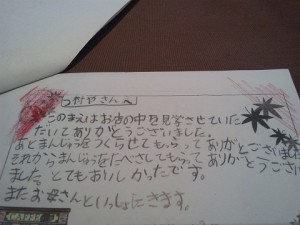 口村やさんへ
このまえはお店の中を見学させていた
だいてありがとうございました。
あとまんじゅうをつくらせてもらってありがとうございました
これからまんじゅうをたべさしてもらってありがとうござい
ました。とてもおいしかったです。
またお母さんといっしょにきます。
CAFFE